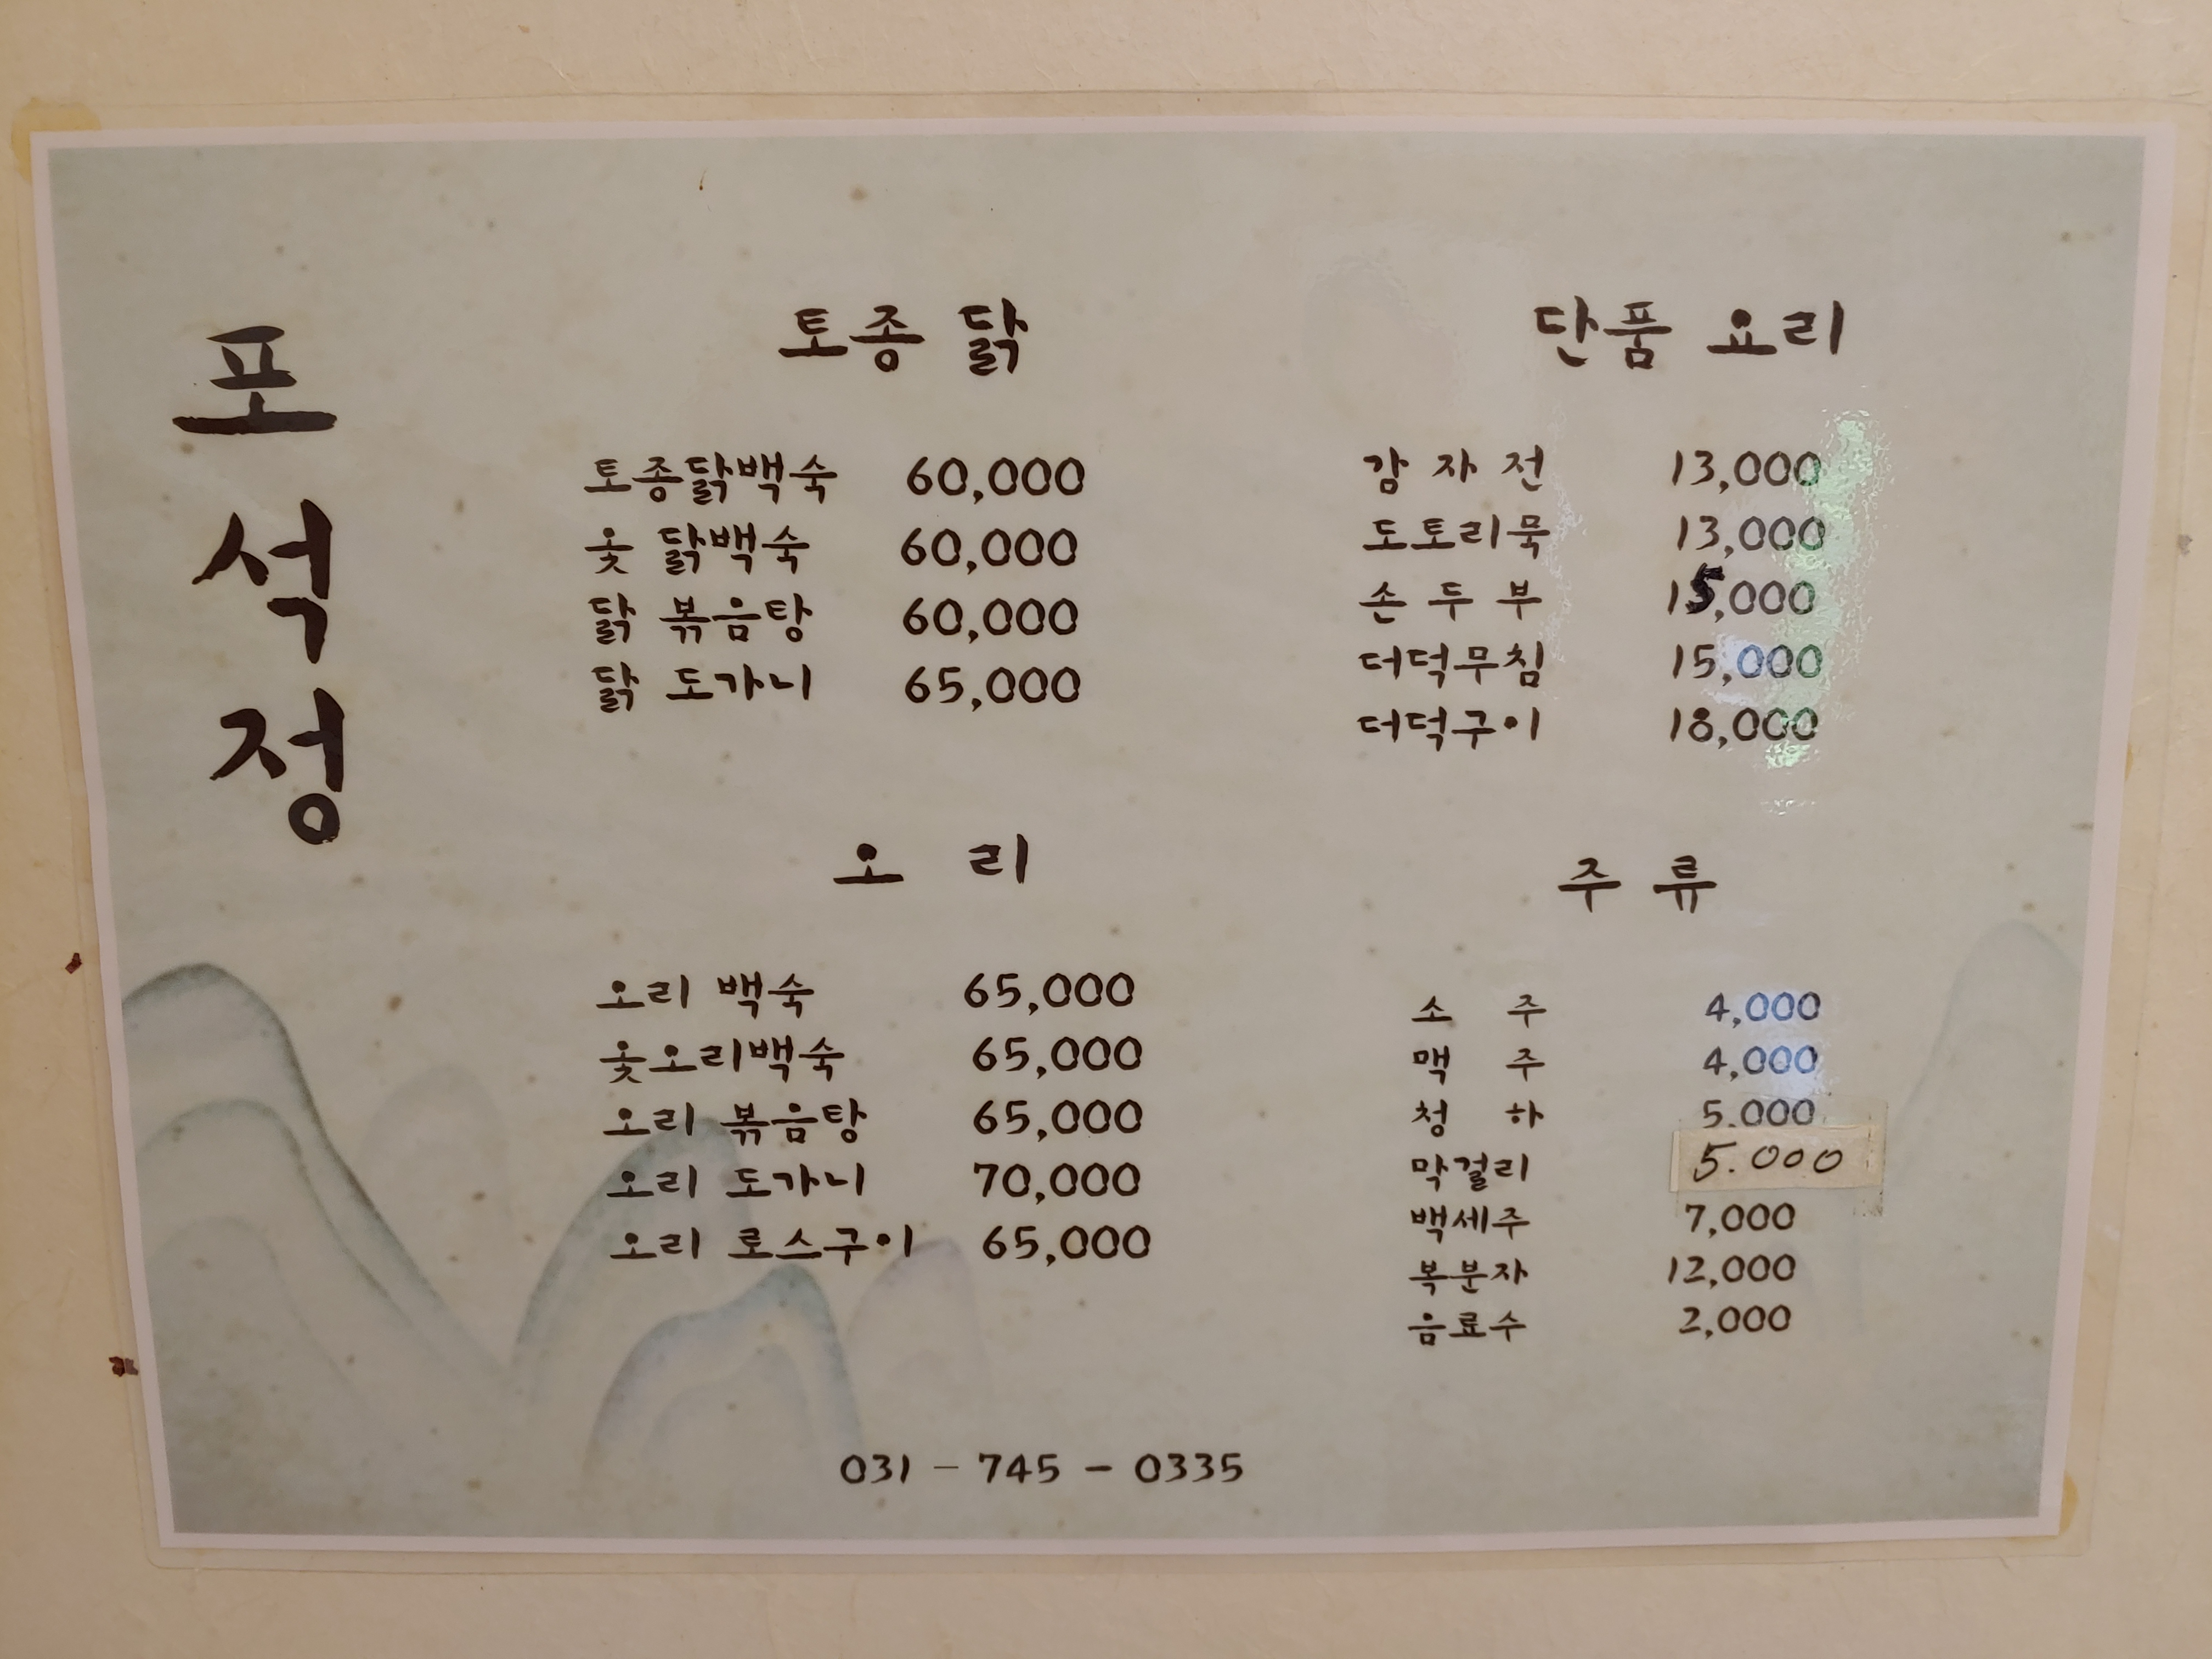 포석정
토종 닭
토종닭백숙 60,000
옻 닭백숙 60,000
닭 볶음탕 60,000
닭 도가니 65,000
오 리
오리 백숙 65,000
옻오리백숙 65,000
오리 볶음탕 65,000
오리 도가니 70,000
오리 로스구이 65,000
단품 요리
감 자 전 13,000
도토리묵 13,000
손 두 부 15,000
더덕무침 15,000
더덕구이 18,000
주 류
소 주 4,000
맥 주 4,000
청 하 5,000
막걸리 5.000
백세주 7,000
복분자 12,000
음료수 2,000
031 - 745 - 0335